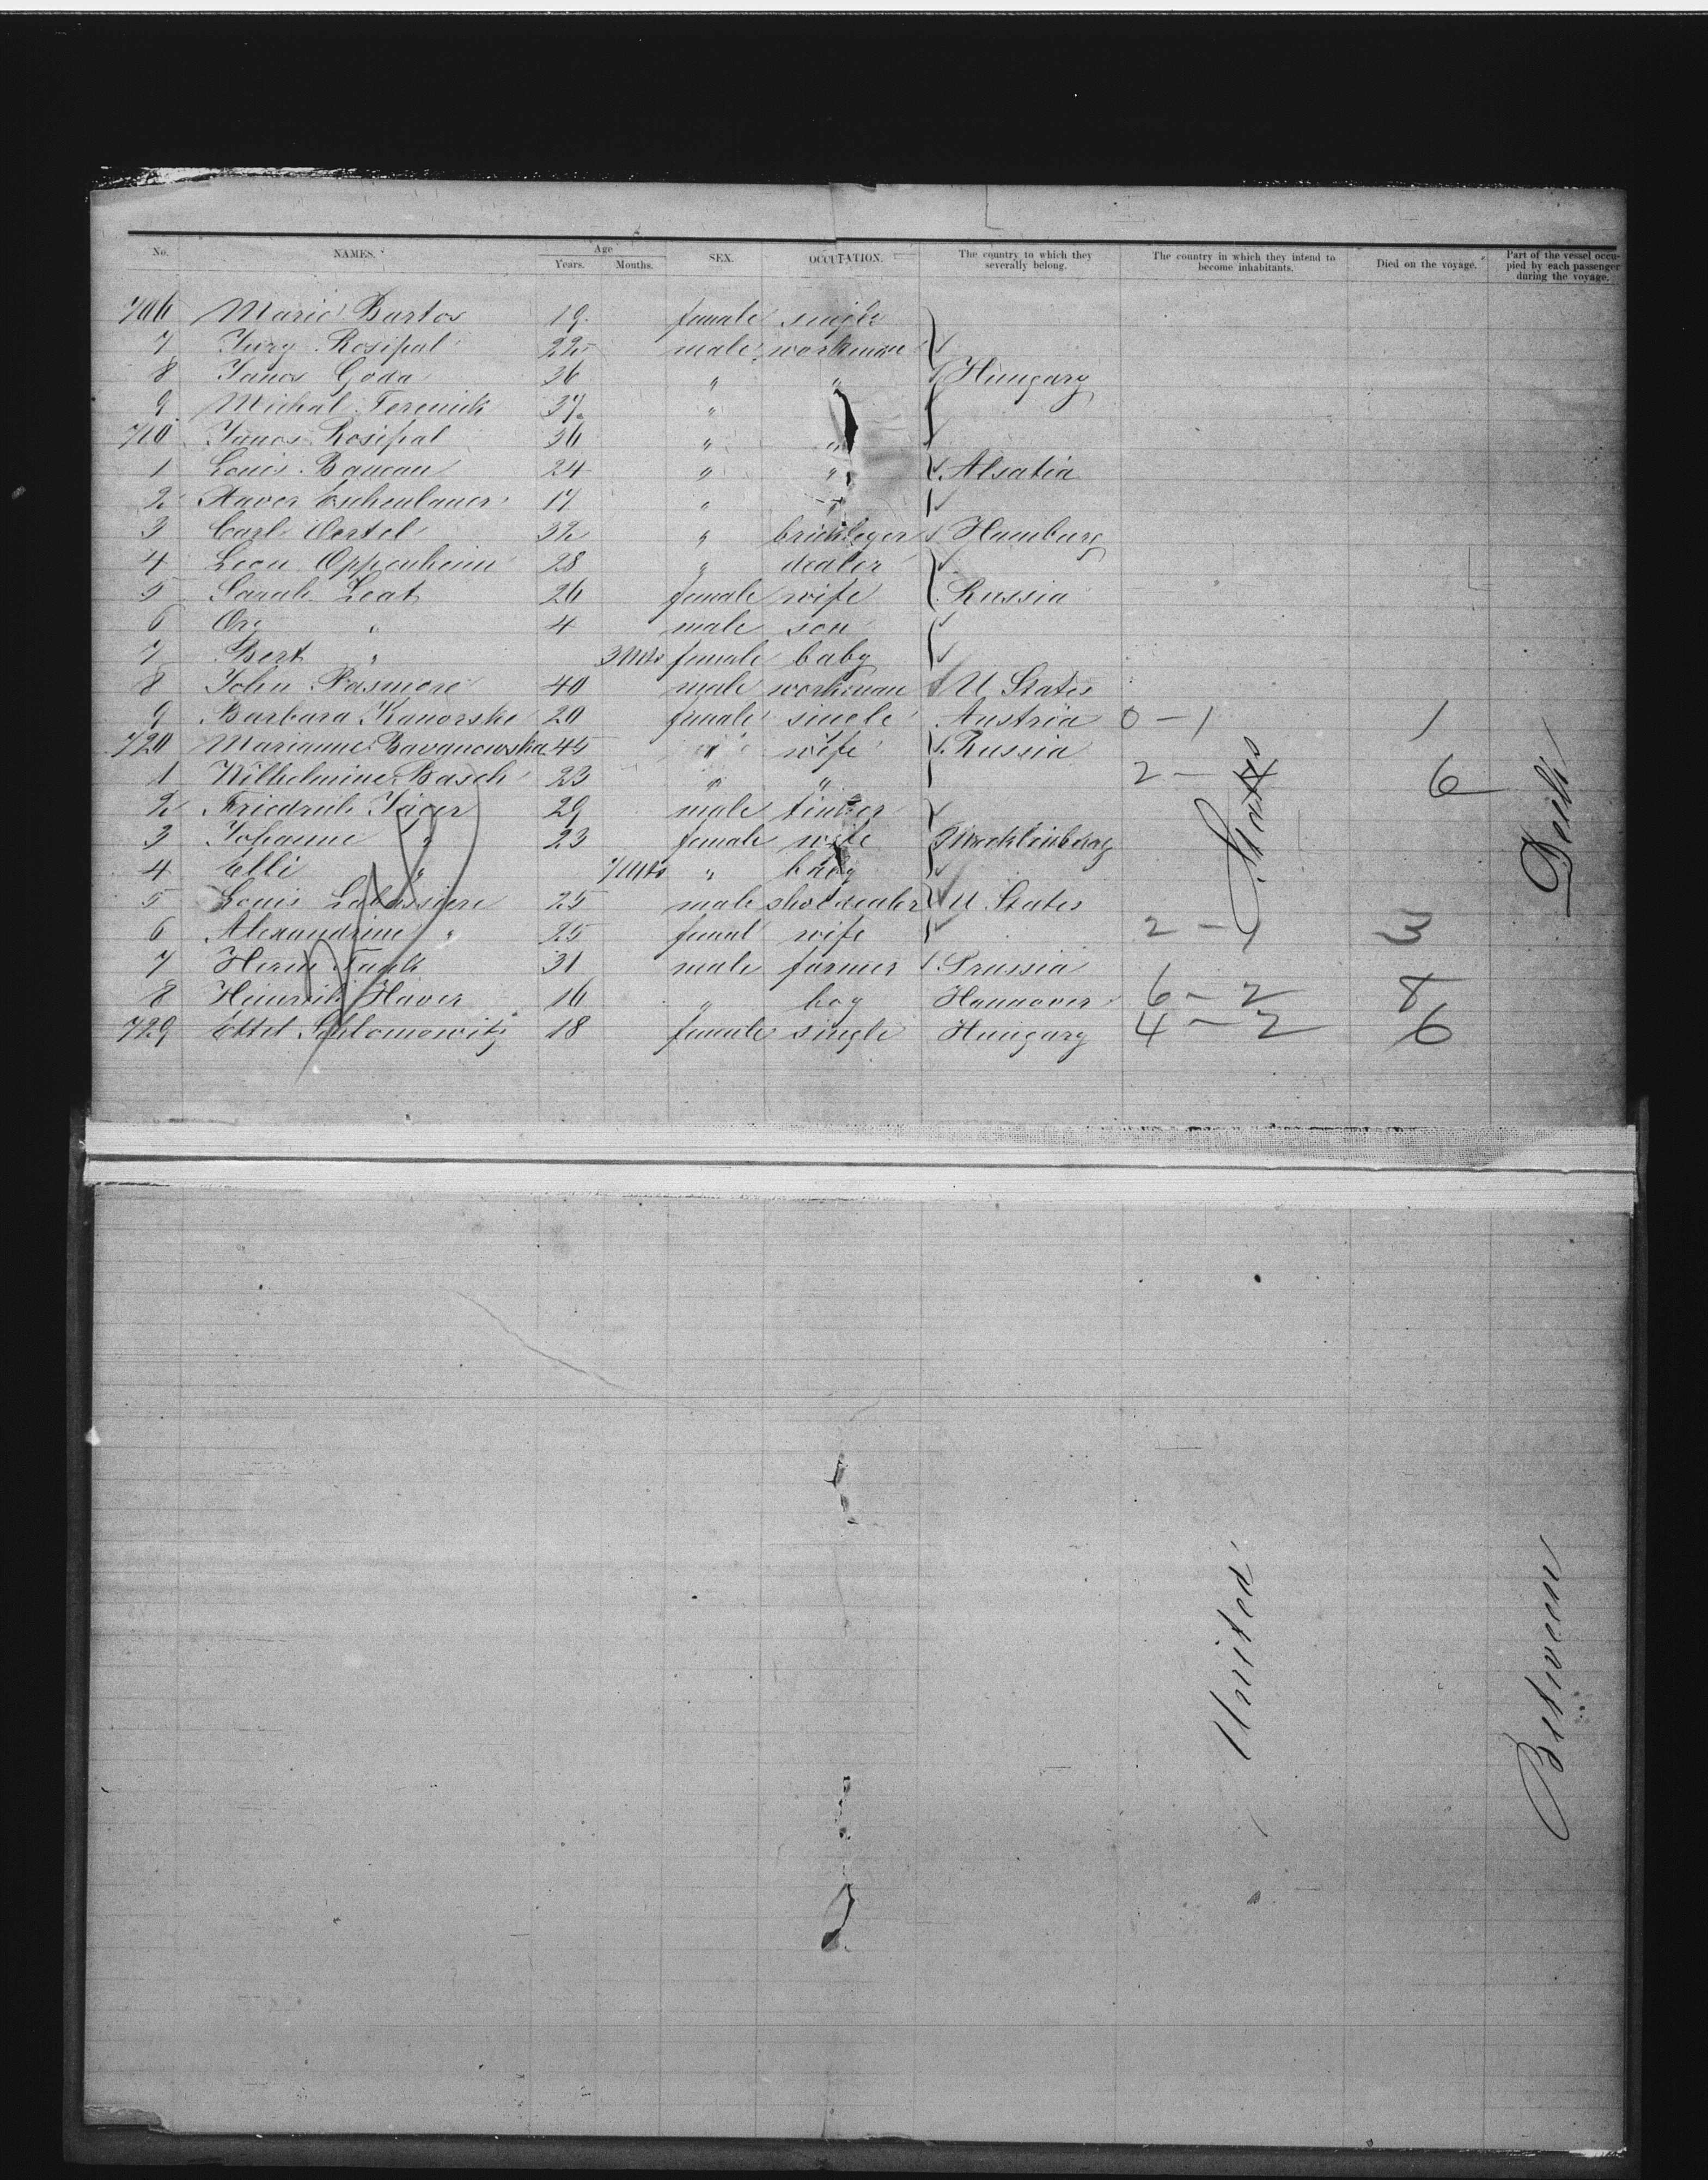 No. NAMES. Age Years. Months. SEX. OCCUTATION. The country to which they severally belong. The country in which they intend to become inhabitants. Died on the voyage. Part of the vessel occupied by each passenger during the voyage.
706 Marie Bartos 19 female single
7 Jury Rosipal 22 male workman
8 Janos Goda 36 " " Hungary
9 Michal Ferenik 37 "
710 Janos Rosipal 36 " "
1 Louis 24 " " Alsatia
2 17 "
3 Carl Oertel 32 " Hamburg
4 Leon Oppenheim 28 " dealer
5 Sarah Leat 26 female wife Russia
6 " 4 male son
7 Bert " 3 Mts female baby
8 John Pasmore 40 male workman U States
9 Barbara Kanorske 20 female single Austria 0 - 1 1
720 Marianne 45 " wife Russia
1 Wilhelmine Basch 23 " " 2 - 6
2 Friedrich Jäger 29 male
3 Johanne " 23 female wife Mecklenburg
4 Elli " 7 Mts " baby
5 Louis 25 male U States
6 Alexandrine " 25 femal wife 2 - 3
7 31 male farmer Prussia
8 Heinrich Haver 16 " boy Hannover 6 - 2 8
729 Ettel Schlomowitz 18 female single Hungary 4 - 2 6
United States
Between Deck